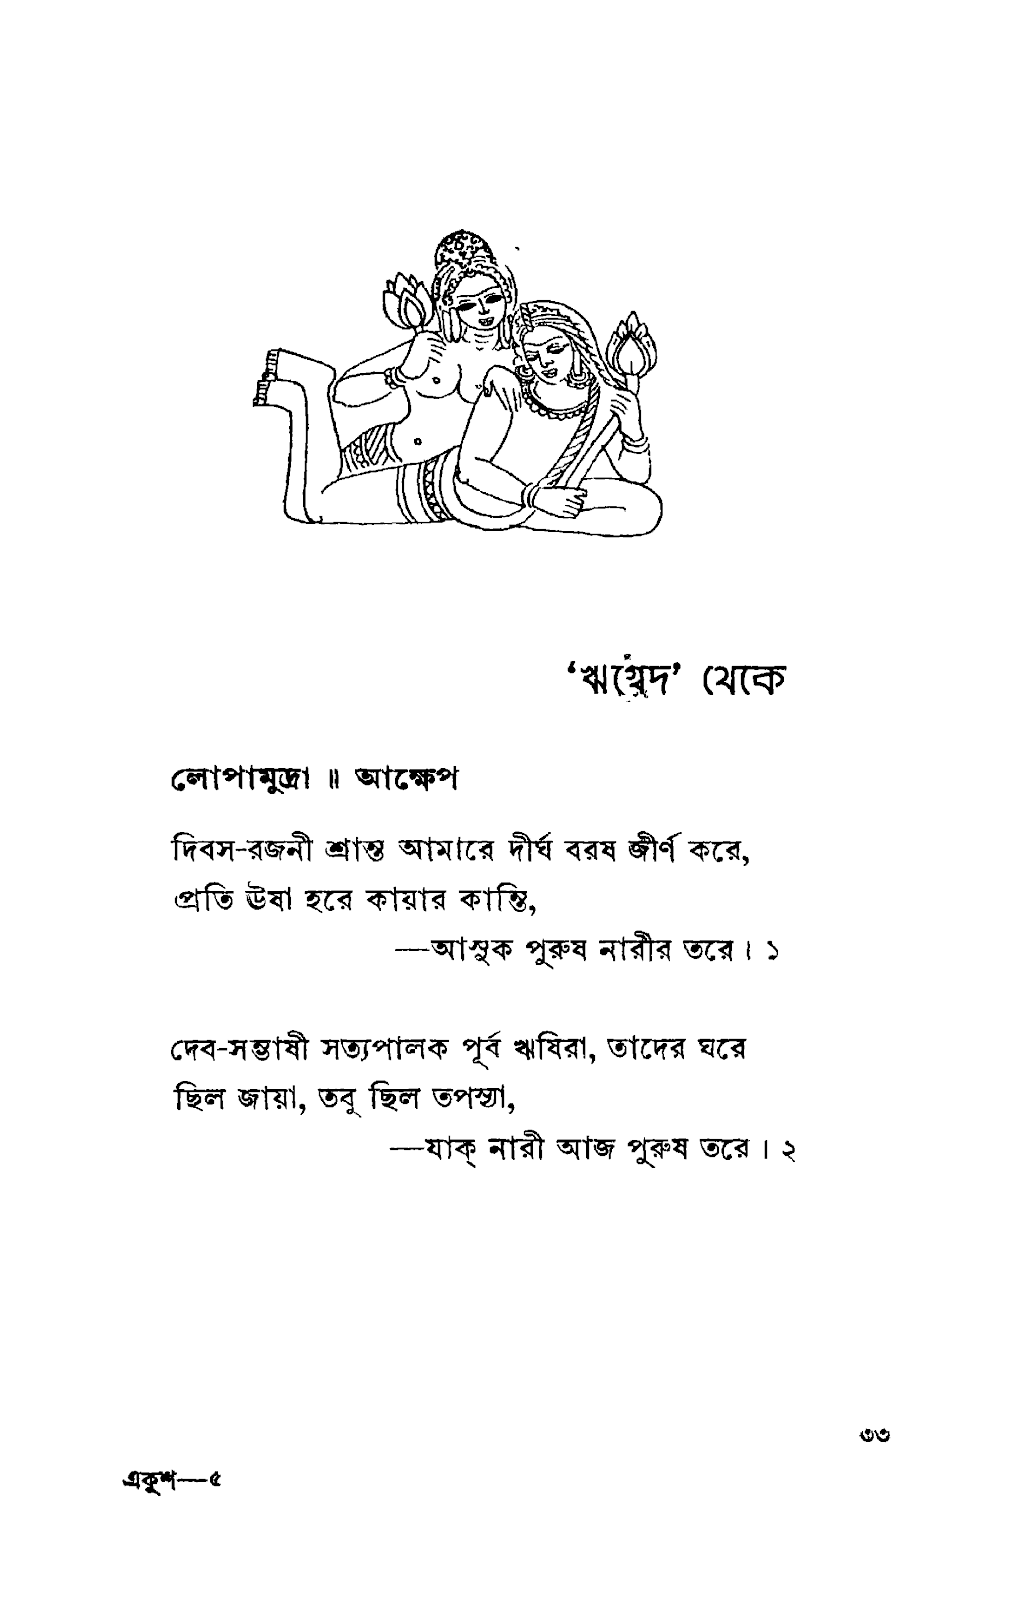 ‘ঋগ্বেদ’ থেকে
লোপামুদ্রা ॥ আক্ষেপ
দিবস-রজনী শ্রান্ত আমারে দীর্ঘ বরষ জীর্ণ করে,
প্রতি ঊষা হরে কায়ার কান্তি,
—আসুক পুরুষ নারীর তরে। ১
দেব-সম্ভাষী সত্যপালক পূর্ব ঋষিরা, তাদের ঘরে
ছিল জায়া, তবু ছিল তপস্যা,
—যাক্ নারী আজ পুরুষ তরে। ২
৩৩
একুশ—৫